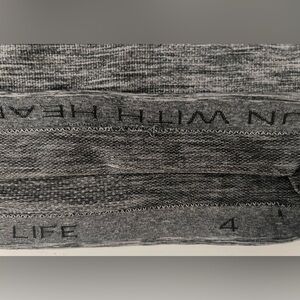 UN WITH HEA
LIFE 4